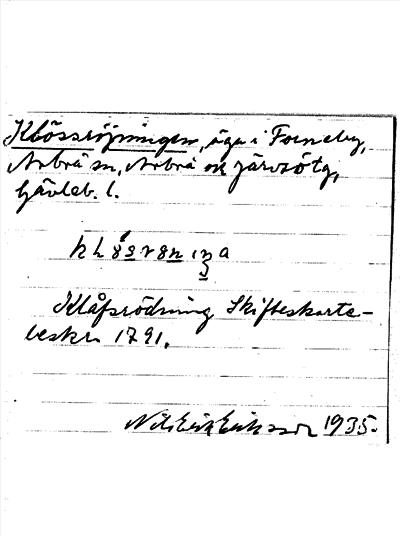 Klössröjningen, äga i Forneby,
Arbrå sn, Arbrå och Järvsötg,
Gävleb. l.
Klåfsrödning Skifteskarta-
beskr. 1791.
Nils Erik Eriksson 1935.